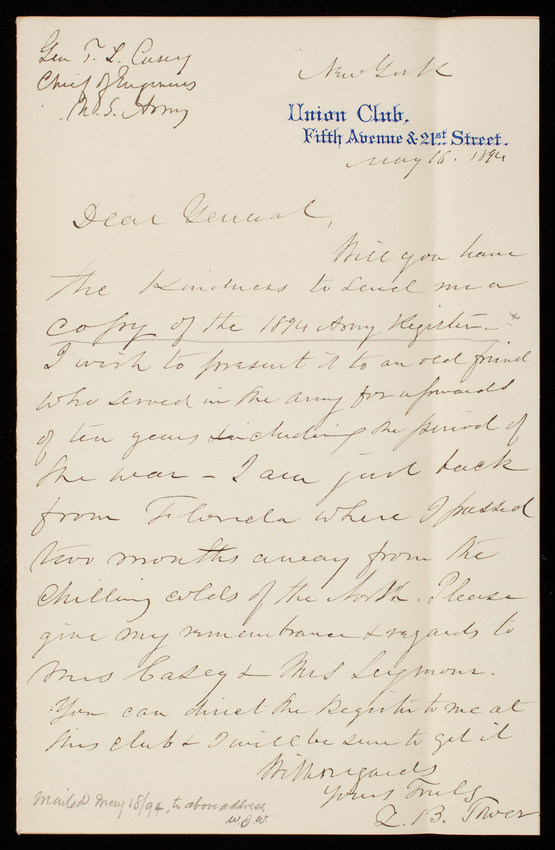 Gen T. L. Casey
Chief of Engineers
U.S. Army
New York
Union Club,
Fifth Avenue & 21st Street.
May 16. 1894
Dear General,
Will you have
the kindness to send me a
copy of the 1894 Army Register. x
I wish to present it to an old friend
who served in the army for upwards
of ten years including the period of
the war - I am just back
from Florida where I passed
two months away from the
chilling colds of the North. Please
give my remembrance & regards to
Mrs Casey & Mrs Seymour.
You can direct the Register to me at
this club & I will be sure to get it
With regards
Yours Truly
Z. B. Tower
Mailed May 18/94, to above address,